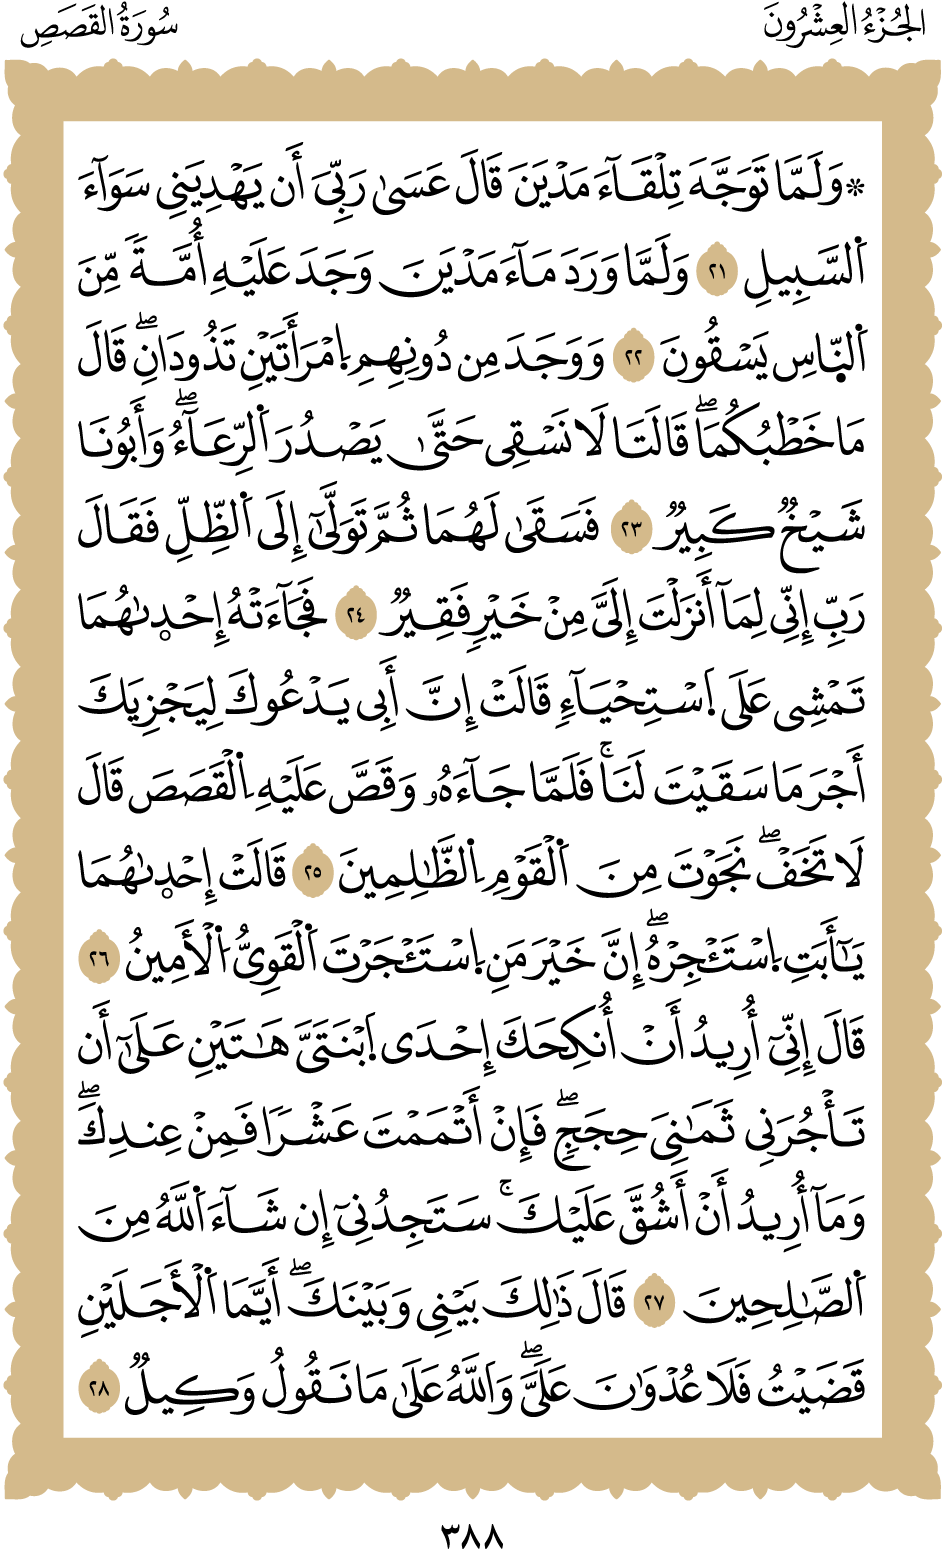 سُورَةُ القَصَصِ
الجُزْءُ العِشْرُونَ
۞وَلَمَّا تَوَجَّهَ تِلْقَآءَ مَدْيَنَ قَالَ عَسَىٰ رَبِّيَ أَن يَهْدِيَنِي سَوَآءَ
اَ۬لسَّبِيلِ ٢١ وَلَمَّا وَرَدَ مَآءَ مَدْيَنَ وَجَدَ عَلَيْهِ أُمَّةٗ مِّنَ
اَ۬لنَّاسِ يَسْقُونَ ٢٢ وَوَجَدَ مِن دُونِهِمِ اِ۪مْرَأَتَيْنِ تَذُودَانِۖ قَالَ
مَا خَطْبُكُمَاۖ قَالَتَا لَا نَسْقِي حَتَّىٰ يَصْدُرَ اَ۬لرِّعَآءُۖ وَأَبُونَا
شَيْخٞ كَبِيرٞ ٢٣ فَسَقَىٰ لَهُمَا ثُمَّ تَوَلَّىٰٓ إِلَى اَ۬لظِّلِّ فَقَالَ
رَبِّ إِنِّي لِمَآ أَنزَلْتَ إِلَيَّ مِنْ خَيْرٖ فَقِيرٞ ٢٤ فَجَآءَتْهُ إِحْدۭىٰهُمَا
تَمْشِي عَلَى اَ۪سْتِحْيَآءٖ قَالَتْ إِنَّ أَبِي يَدْعُوكَ لِيَجْزِيَكَ
أَجْرَ مَا سَقَيْتَ لَنَاۚ فَلَمَّا جَآءَهُۥ وَقَصَّ عَلَيْهِ اِ۬لْقَصَصَ قَالَ
لَا تَخَفْۖ نَجَوْتَ مِنَ اَ۬لْقَوْمِ اِ۬لظَّٰلِمِينَ ٢٥ قَالَتْ إِحْدۭىٰهُمَا
يَٰٓأَبَتِ اِ۪سْتَـْٔجِرْهُۖ إِنَّ خَيْرَ مَنِ اِ۪سْتَـْٔجَرْتَ اَ۬لْقَوِيُّ اُ۬لْأَمِينُ ٢٦
قَالَ إِنِّيٓ أُرِيدُ أَنْ أُنكِحَكَ إِحْدَى اَ۪بْنَتَيَّ هَٰتَيْنِ عَلَىٰٓ أَن
تَأْجُرَنِي ثَمَٰنِيَ حِجَجٖۖ فَإِنْ أَتْمَمْتَ عَشْرٗا فَمِنْ عِندِكَۖ
وَمَآ أُرِيدُ أَنْ أَشُقَّ عَلَيْكَۚ سَتَجِدُنِيٓ إِن شَآءَ اَ۬للَّهُ مِنَ
اَ۬لصَّٰلِحِينَ ٢٧ قَالَ ذَٰلِكَ بَيْنِي وَبَيْنَكَۖ أَيَّمَا اَ۬لْأَجَلَيْنِ
قَضَيْتُ فَلَا عُدْوَٰنَ عَلَيَّۖ وَاَ۬للَّهُ عَلَىٰ مَا نَقُولُ وَكِيلٞ ٢٨
٣٨٨